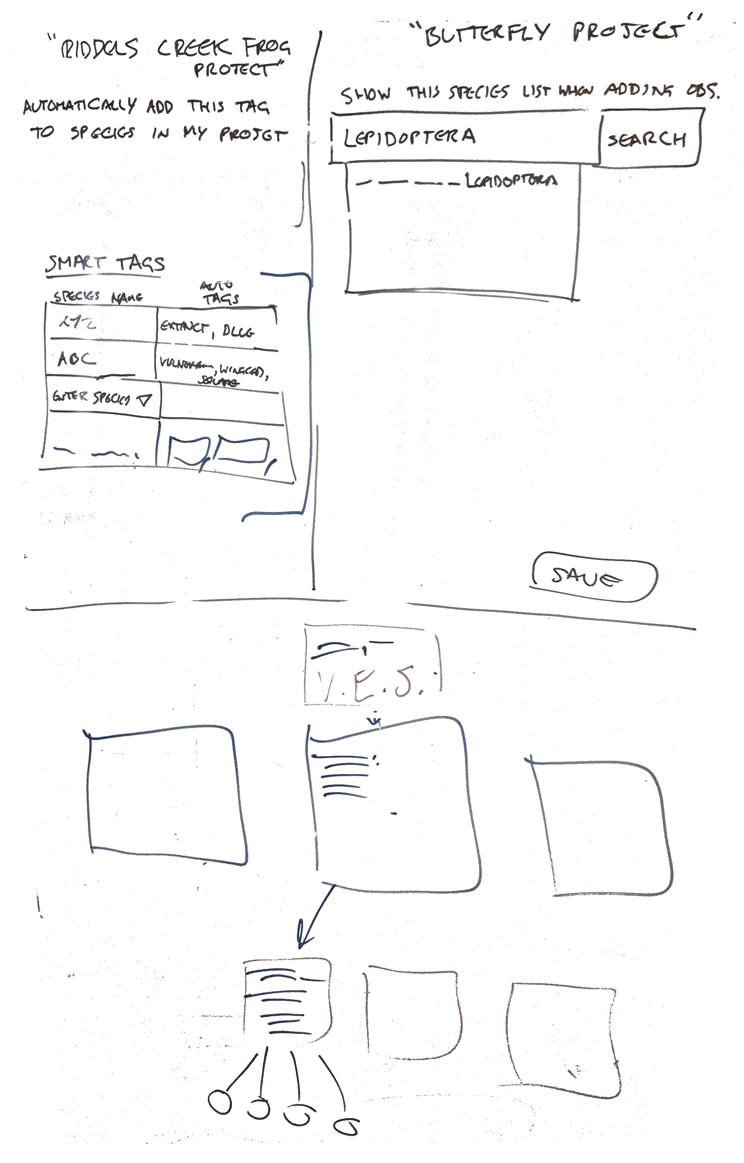 "RIDDELS CREEK FROG
PROJECT"
AUTOMATICALLY ADD THIS TAG
TO SPECIES IN MY PROJET
SMART TAGS
SPECIES NAME
AUTO
TAGS
XYZ
EXTINCT,
ABC
ENTER SPECIES ▽
"BUTTERFLY PROJECT"
SHOW THIS SPECIES LIST WHEN ADDING OBS.
LEPIDOPTERA
SEARCH
LEPIDOPTERA
SAVE
V.E.S.